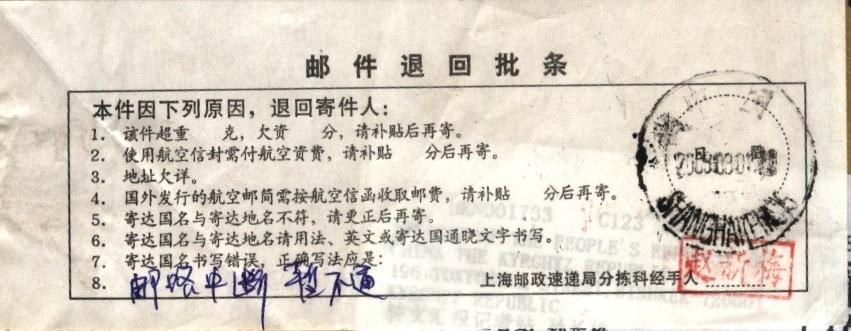 邮件退回批条
本件因下列原因，退回寄件人：
1. 该件超重 克，欠资 分，请补贴后再寄。
2. 使用航空信封需付航空资费，请补贴 分后再寄。
3. 地址欠详。
4. 国外发行的航空邮简需按航空信函收取邮费，请补贴 分后再寄。
5. 寄达国名与寄达地名不符，请更正后再寄。
6. 寄达国名与寄达地名请用法、英文或寄达国通晓文字书写。
7. 寄达国名书写错误，正确写法应是：
8. 邮路中断 暂不通
上海邮政速递局分拣科经手人
赵新梅
SHANGHAI
001733
C123
PEOPLE'S
THE KYRGYZ
196 TOKTO
KYRGYZ REPUBLIC